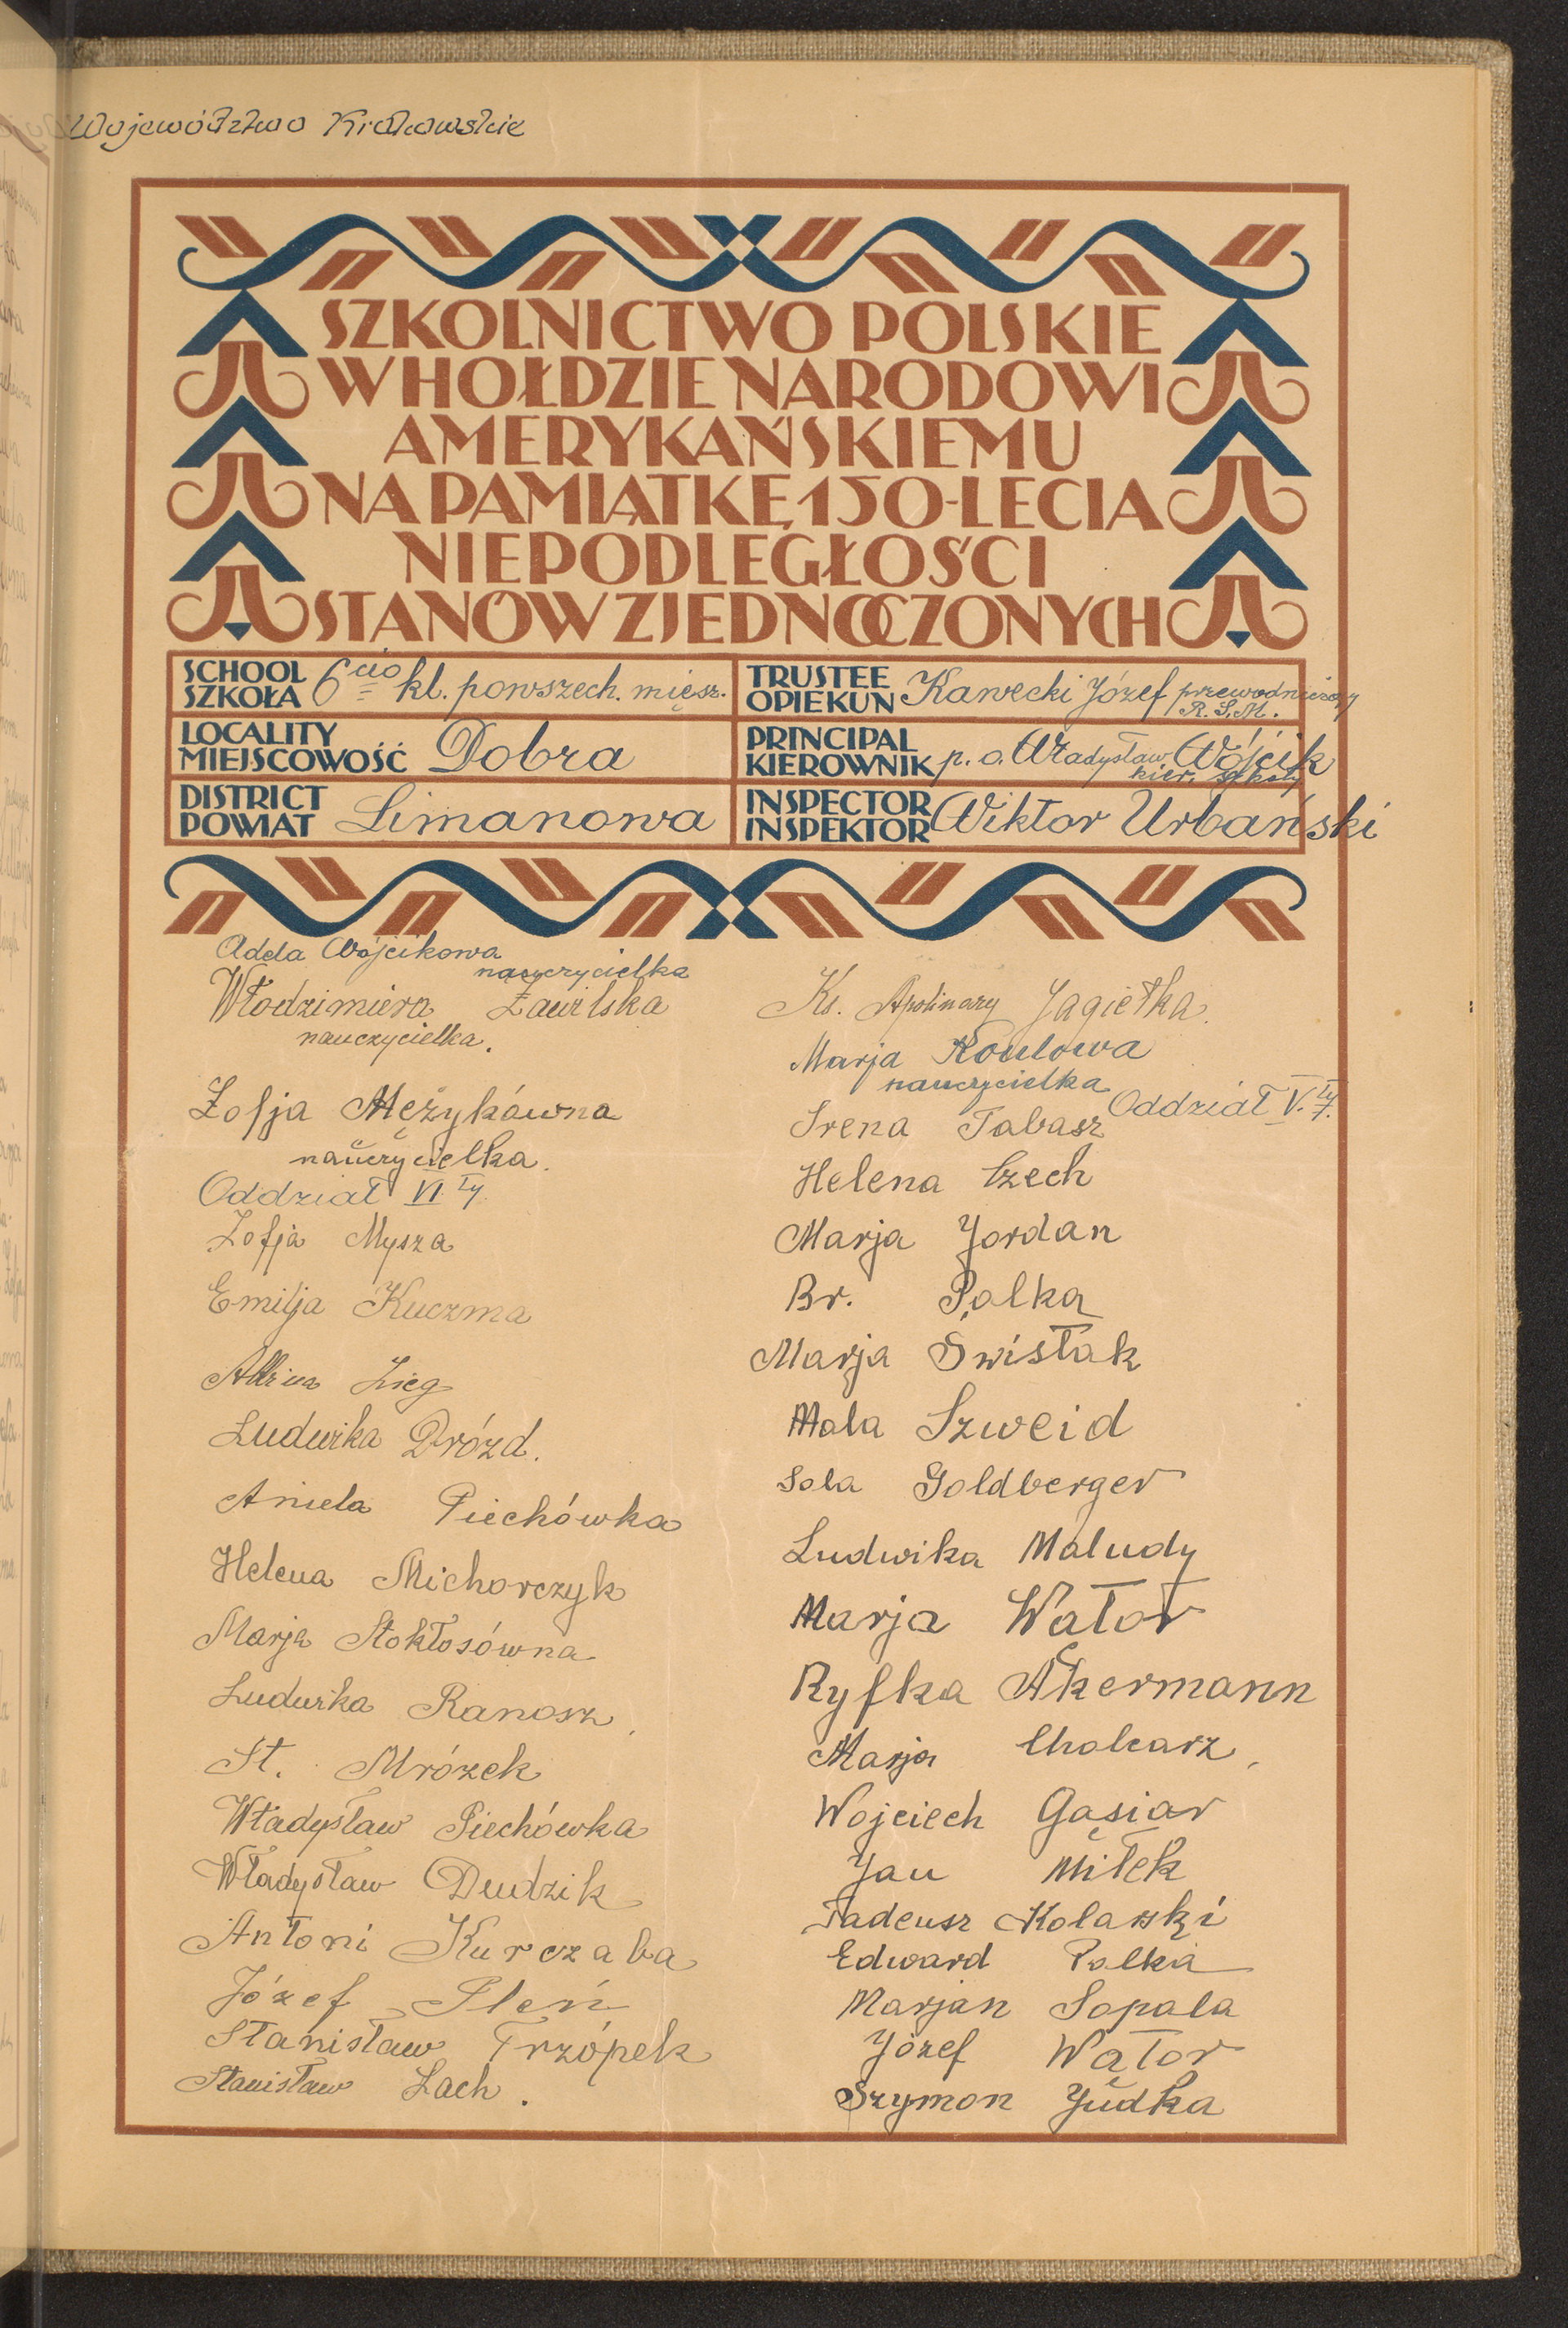 Województwo Krakowskie
SZKOLNICTWO POLSKIE
W HOŁDZIE NARODOWI
AMERYKAŃSKIEMU
NA PAMIĄTKĘ 150-LECIA
NIEPODLEGŁOŚCI
STANÓW ZJEDNOCZONYCH
SCHOOL
SZKOŁA 6cio kl. powszech. miesz.
TRUSTEE
OPIEKUN Kawecki Józef przewodniczący
R. S. M.
LOCALITY
MIEJSCOWOŚĆ Dobra
PRINCIPAL
KIEROWNIK p. o. Władysław Wójcik
kier. szkoły
DISTRICT
POWIAT Limanowa
INSPECTOR
INSPEKTOR Wiktor Urbański
Adela Wójcikowa
nauczycielka
Włodzimiera Zawilska
nauczycielka.
Zofja Mężykówna
nauczycielka.
Oddział VI.ty
Zofja Mysza
Emilja Kuczma
Albina Lieg
Ludwika Drózd.
Aniela Piechówka
Helena Michorczyk
Marja Stokłosówna
Ludwika Ranosz
St. Mrózek
Władysław Piechówka
Władysław Dudzik
Antoni Kurczaba
Józef Pleń
Stanisław Trzópek
Stanisław Lach.
Ks. Apolinary Jagiełka.
Marja
nauczycielka
Oddział V.ty
Irena Tabasz
Helena Czech
Marja Jordan
Br. Palka
Marja Świstak
Mala Szweid
Sala Goldberger
Ludwika Maludy
Marja Wątor
Ryfka Akermann
Marja Cholearz
Wojciech Gąsior
Jan Miłek
Tadeusz Kolarski
Edward Palka
Marjan Sopala
Józef Wątor
Szymon Judka